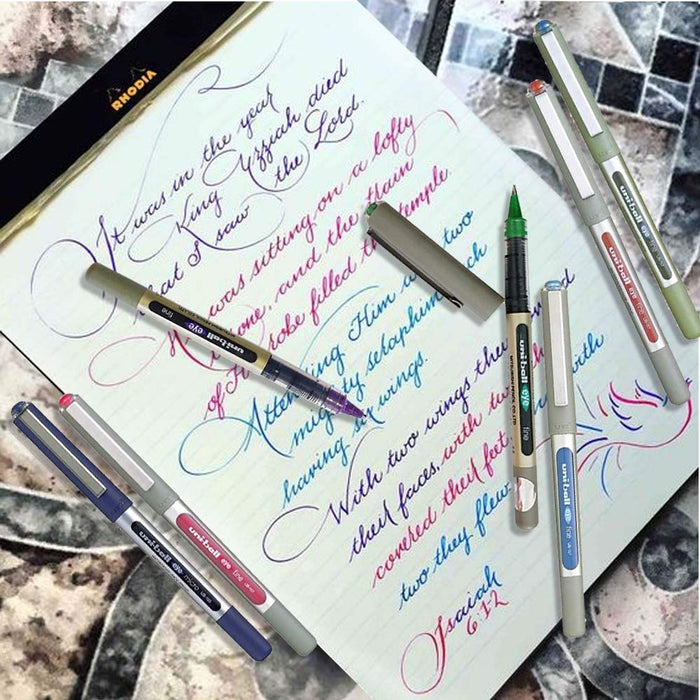 RHODIA
It was in the year
King Uzziah died
that I saw the Lord.
He was sitting on a lofty
throne, and the train
of His robe filled the temple.
Attending Him were two
mighty seraphim, each
having six wings.
With two wings they covered
their faces, with two they
covered their feet, with
two they flew.
Isaiah
6:1-2
uni-ball eye fine
uni-ball eye fine
MITSUBISHI PENCIL CO. LTD
uni-ball eye fine
uni-ball eye
uni-ball eye fine
uni-ball eye micro
uni-ball eye fine